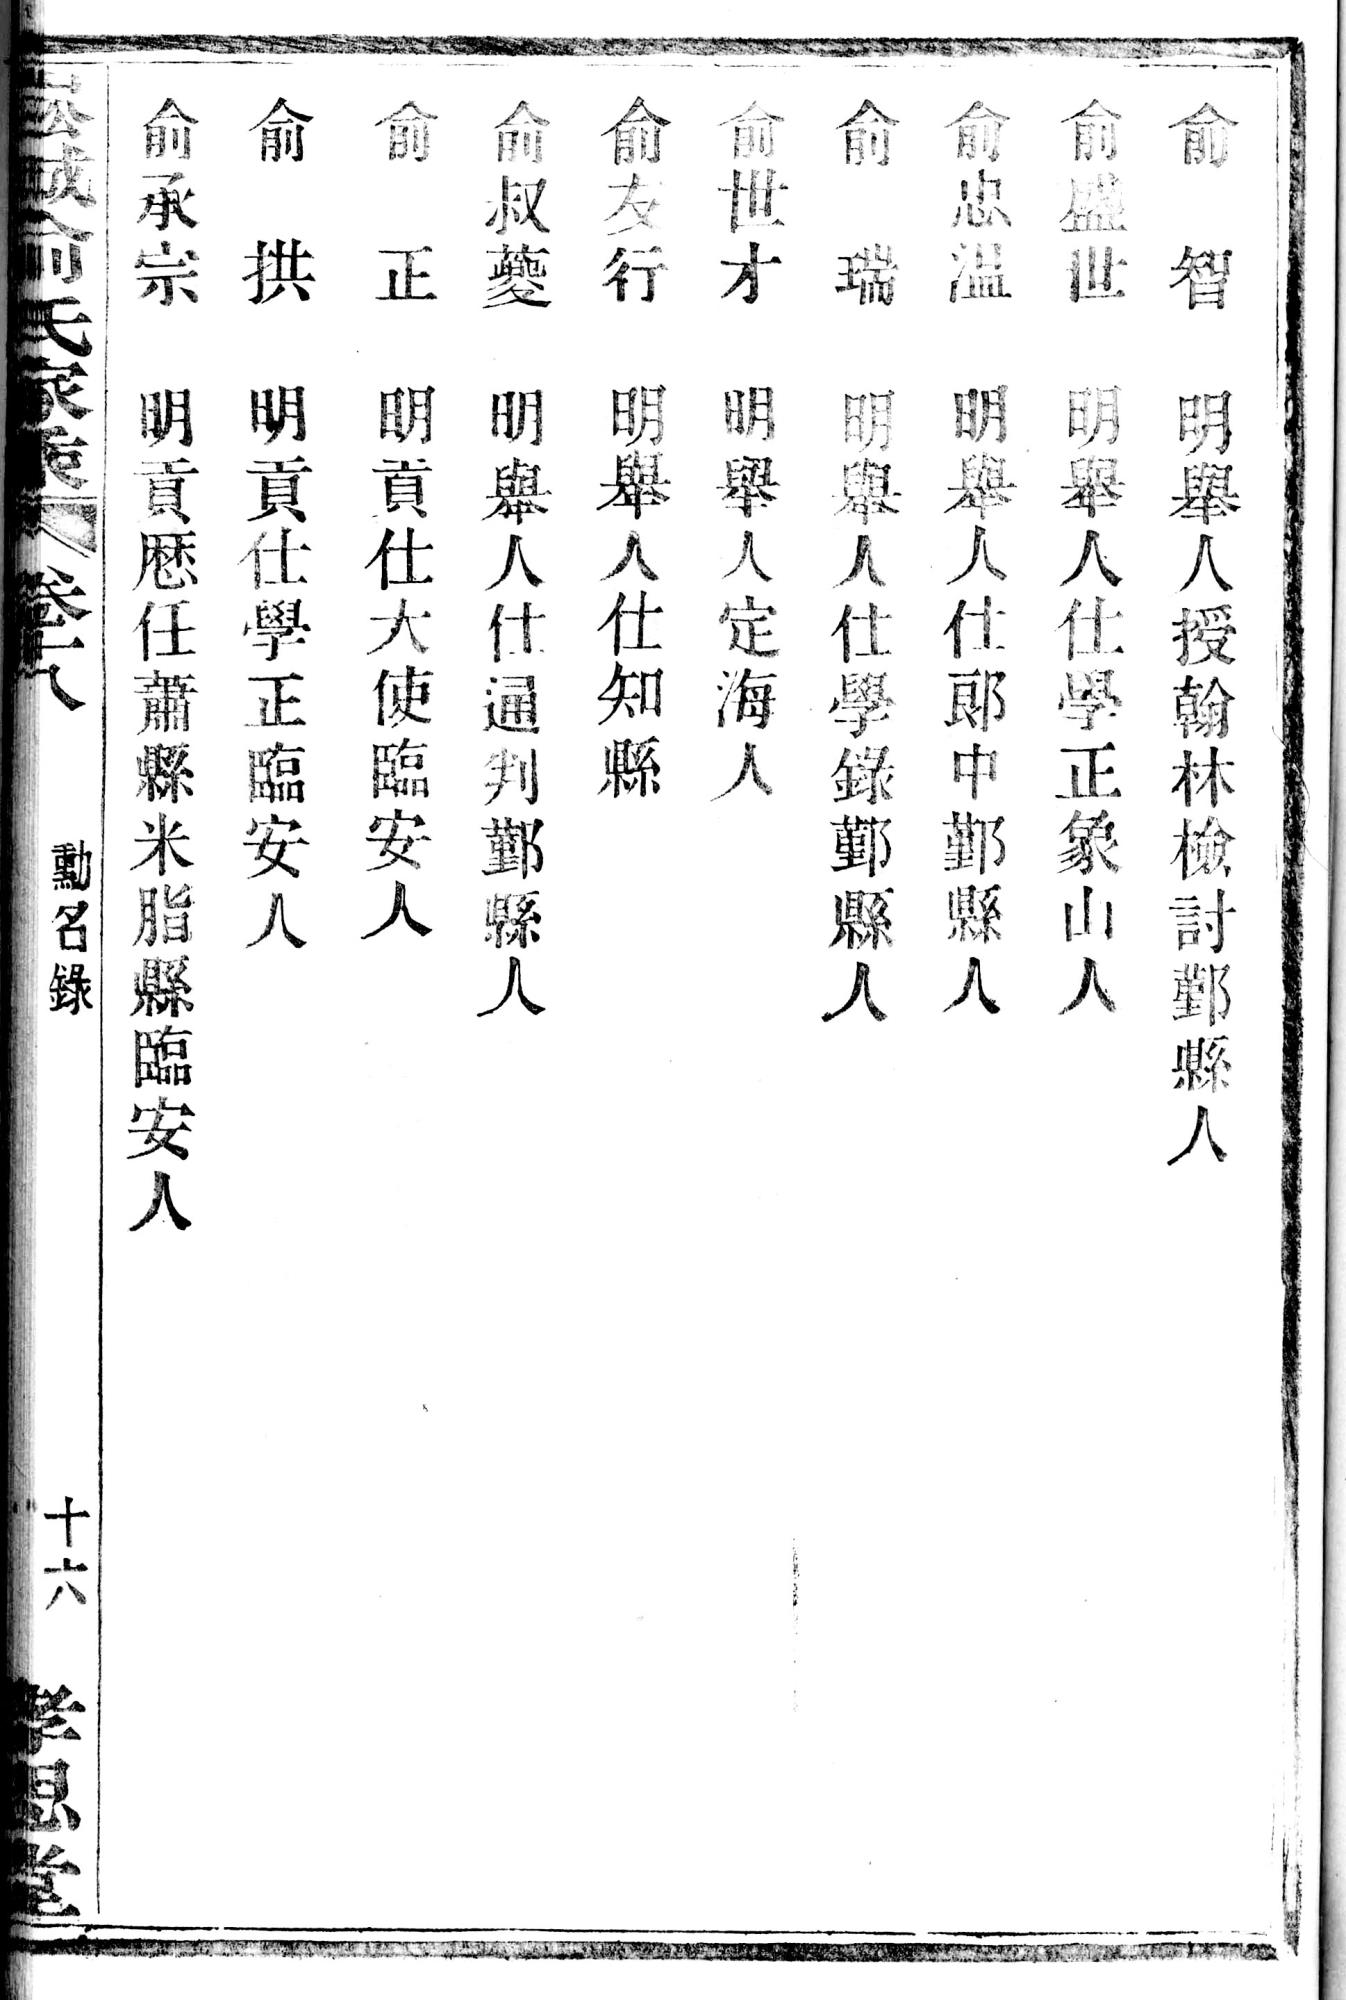 俞　智　明舉人授翰林檢討鄞縣人
俞盛世　明舉人仕學正象山人
俞忠温　明舉人仕郎中鄞縣人
俞　瑞　明舉人仕學錄鄞縣人
俞世才　明舉人定海人
俞友行　明舉人仕知縣
俞叔夔　明舉人仕通判鄞縣人
俞　正　明貢仕大使臨安人
俞　拱　明貢仕學正臨安人
俞承宗　明貢歷任蕭縣米脂縣臨安人
俞氏家乘　卷十八　勳名錄　十六　孝思堂